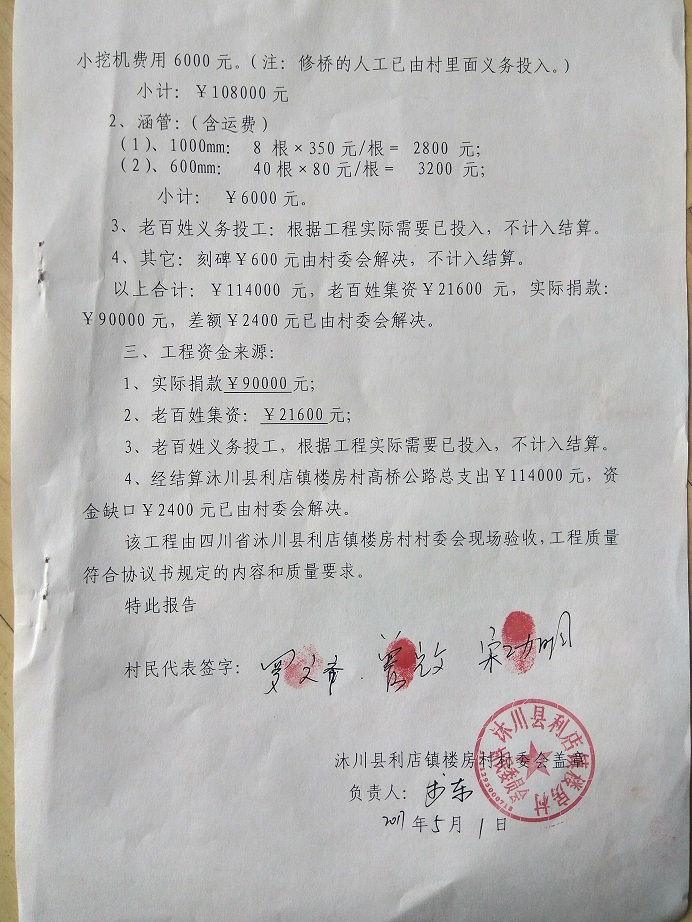 小挖机费用6000元。(注：修桥的人工已由村里面义务投入。)
小计：￥108000元
2、涵管：(含运费)
(1)、1000mm： 8 根×350元/根= 2800 元;
(2)、600mm： 40根×80元/根= 3200 元;
小计： ￥6000元。
3、老百姓义务投工：根据工程实际需要已投入，不计入结算。
4、其它：刻碑￥600元由村委会解决，不计入结算。
以上合计：￥114000 元，老百姓集资￥21600 元，实际捐款：
￥90000元，差额￥2400元已由村委会解决。
三、工程资金来源：
1、实际捐款￥90000元;
2、老百姓集资：￥21600元;
3、老百姓义务投工，根据工程实际需要已投入，不计入结算。
4、经结算沐川县利店镇楼房村高桥公路总支出￥114000元，资
金缺口￥2400元已由村委会解决。
该工程由四川省沐川县利店镇楼房村村委会现场验收，工程质量
符合协议书规定的内容和质量要求。
特此报告
村民代表签字：
沐川县利店镇楼房村村委会盖章
负责人：
2017年5月1日
沐川县利店镇楼房村
村民委员会